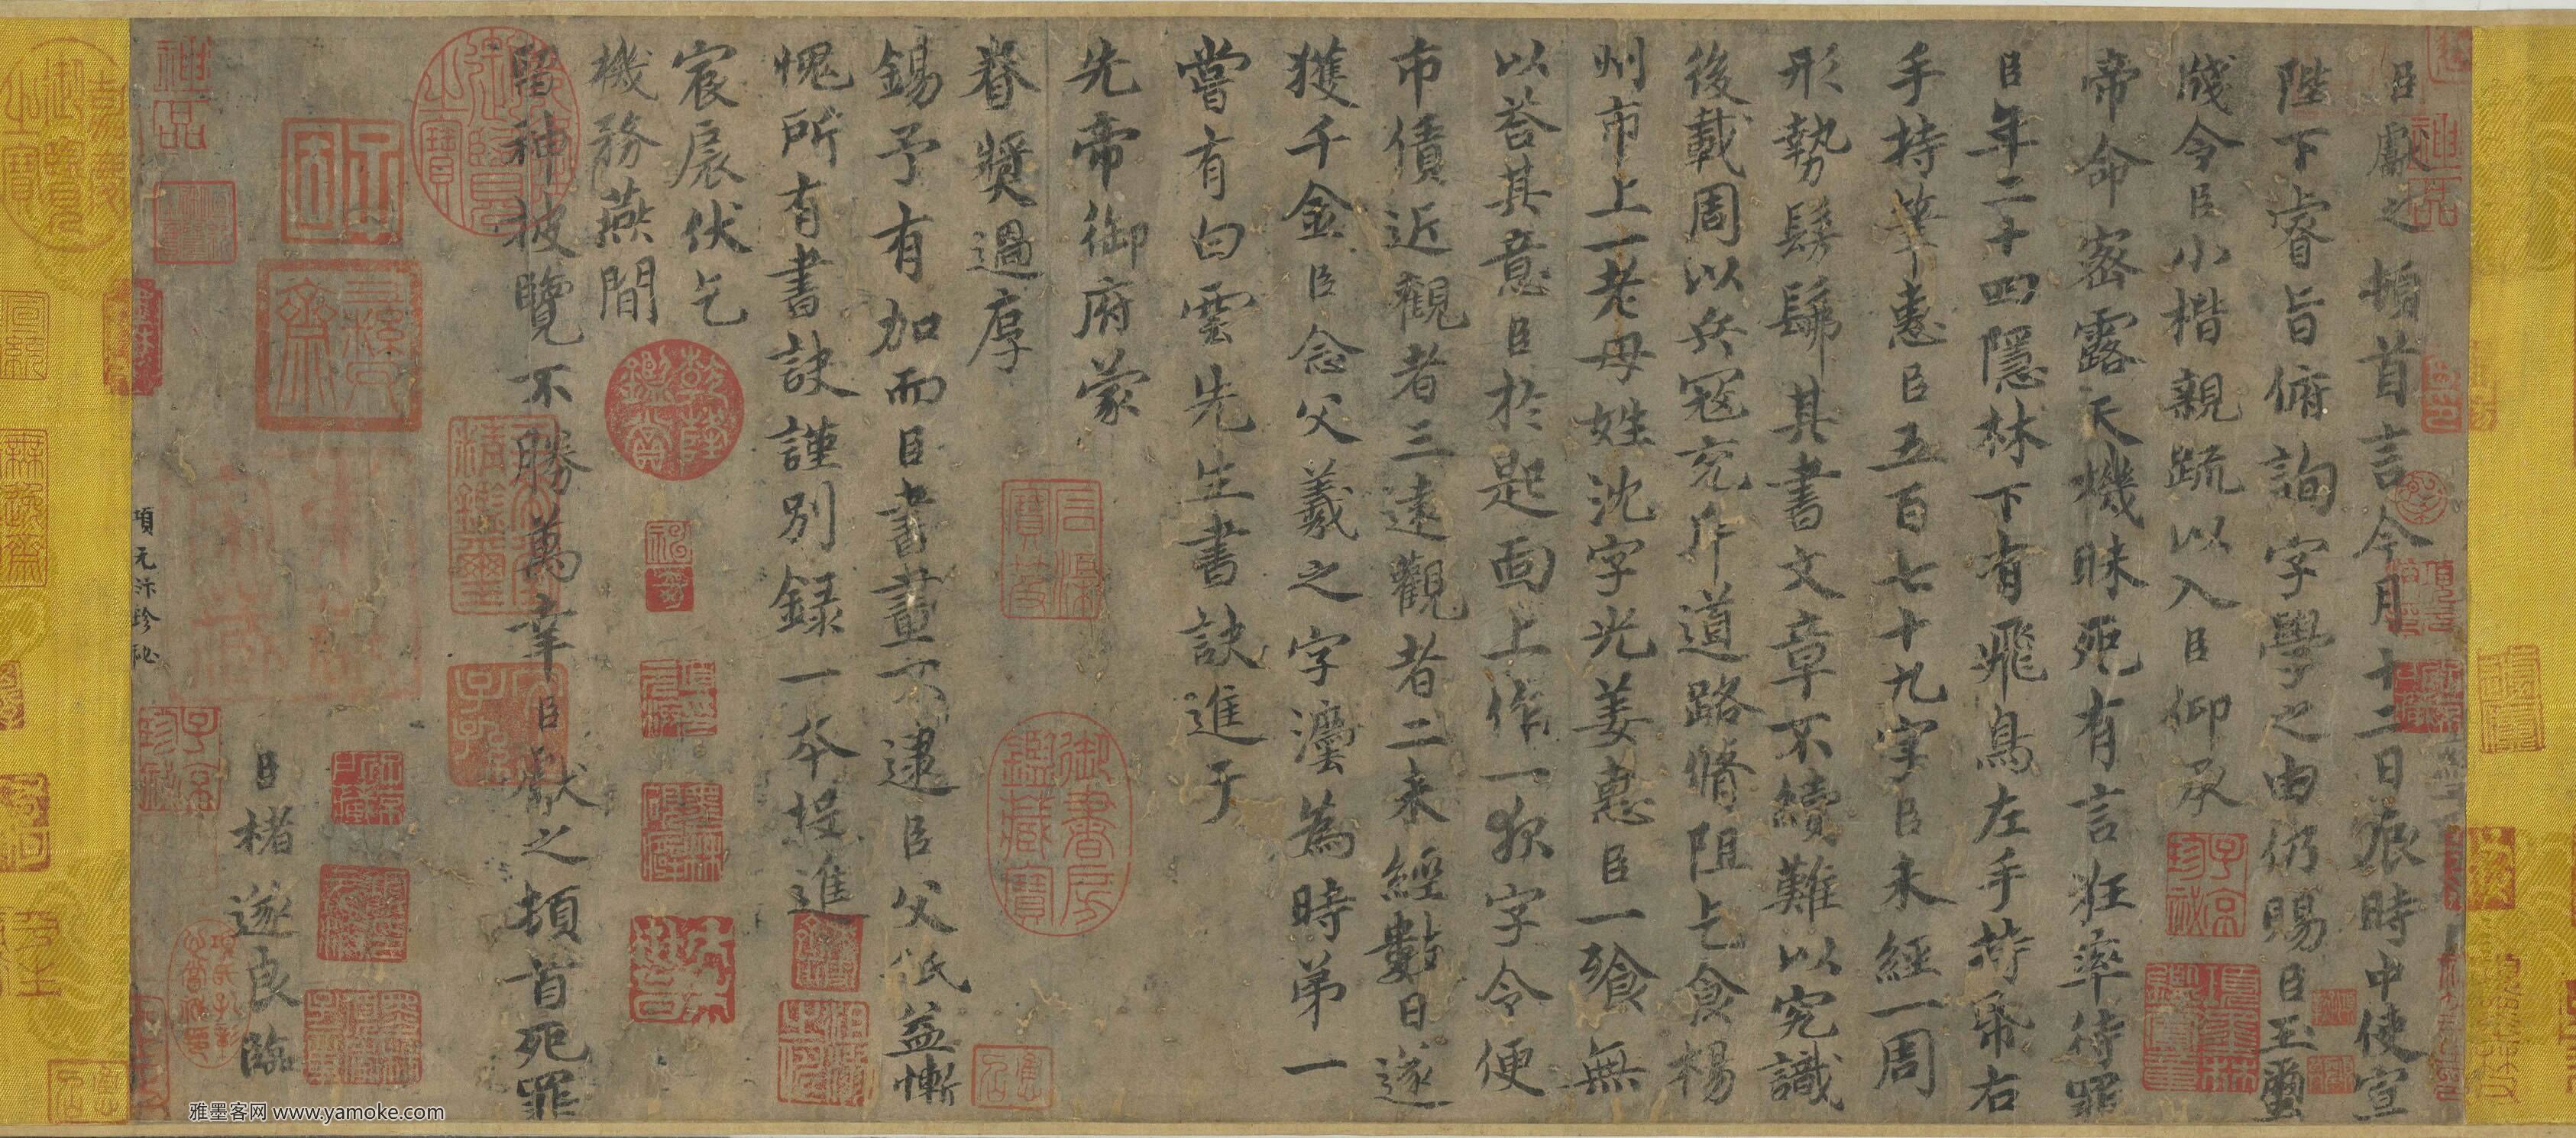 臣獻之頓首言今月十二日辰時中使宣
陛下睿旨俯詢字學之由仍賜臣玉璽
牋令臣小楷親疏以入臣仰承
帝命密露天機昧死有言狂率待罪
臣年二十四隱林下有飛鳥左手持帋右
手持筆惠臣五百七十九字臣未經一周
形勢髣髴其書文章不續難以究識
後載周以兵寇充斥道路脩阻乞食楊
州市上一老母姓沈字光姜惠臣一飱無
以荅其意臣於匙面上作一夜字令便
市債近觀者三遠觀者二未經數日遂
獲千金臣念父羲之字濡為時弟一
嘗有白雲先生書訣進于
先帝御府蒙
眷獎過厚
錫予有加而臣書畫不逮臣父衹益慚
愧所有書訣謹別録一本投進
宸扆伏乞
機務燕間
留神披覽不勝萬幸臣獻之頓首死罪
臣褚遂良臨
項元汴珍祕
神品
乾隆鑑賞
三希堂精鑑璽
宜子孫
御書房鑑藏寶
嘉慶御覽之寶
石渠寶笈
雅墨客网 www.yamoke.com